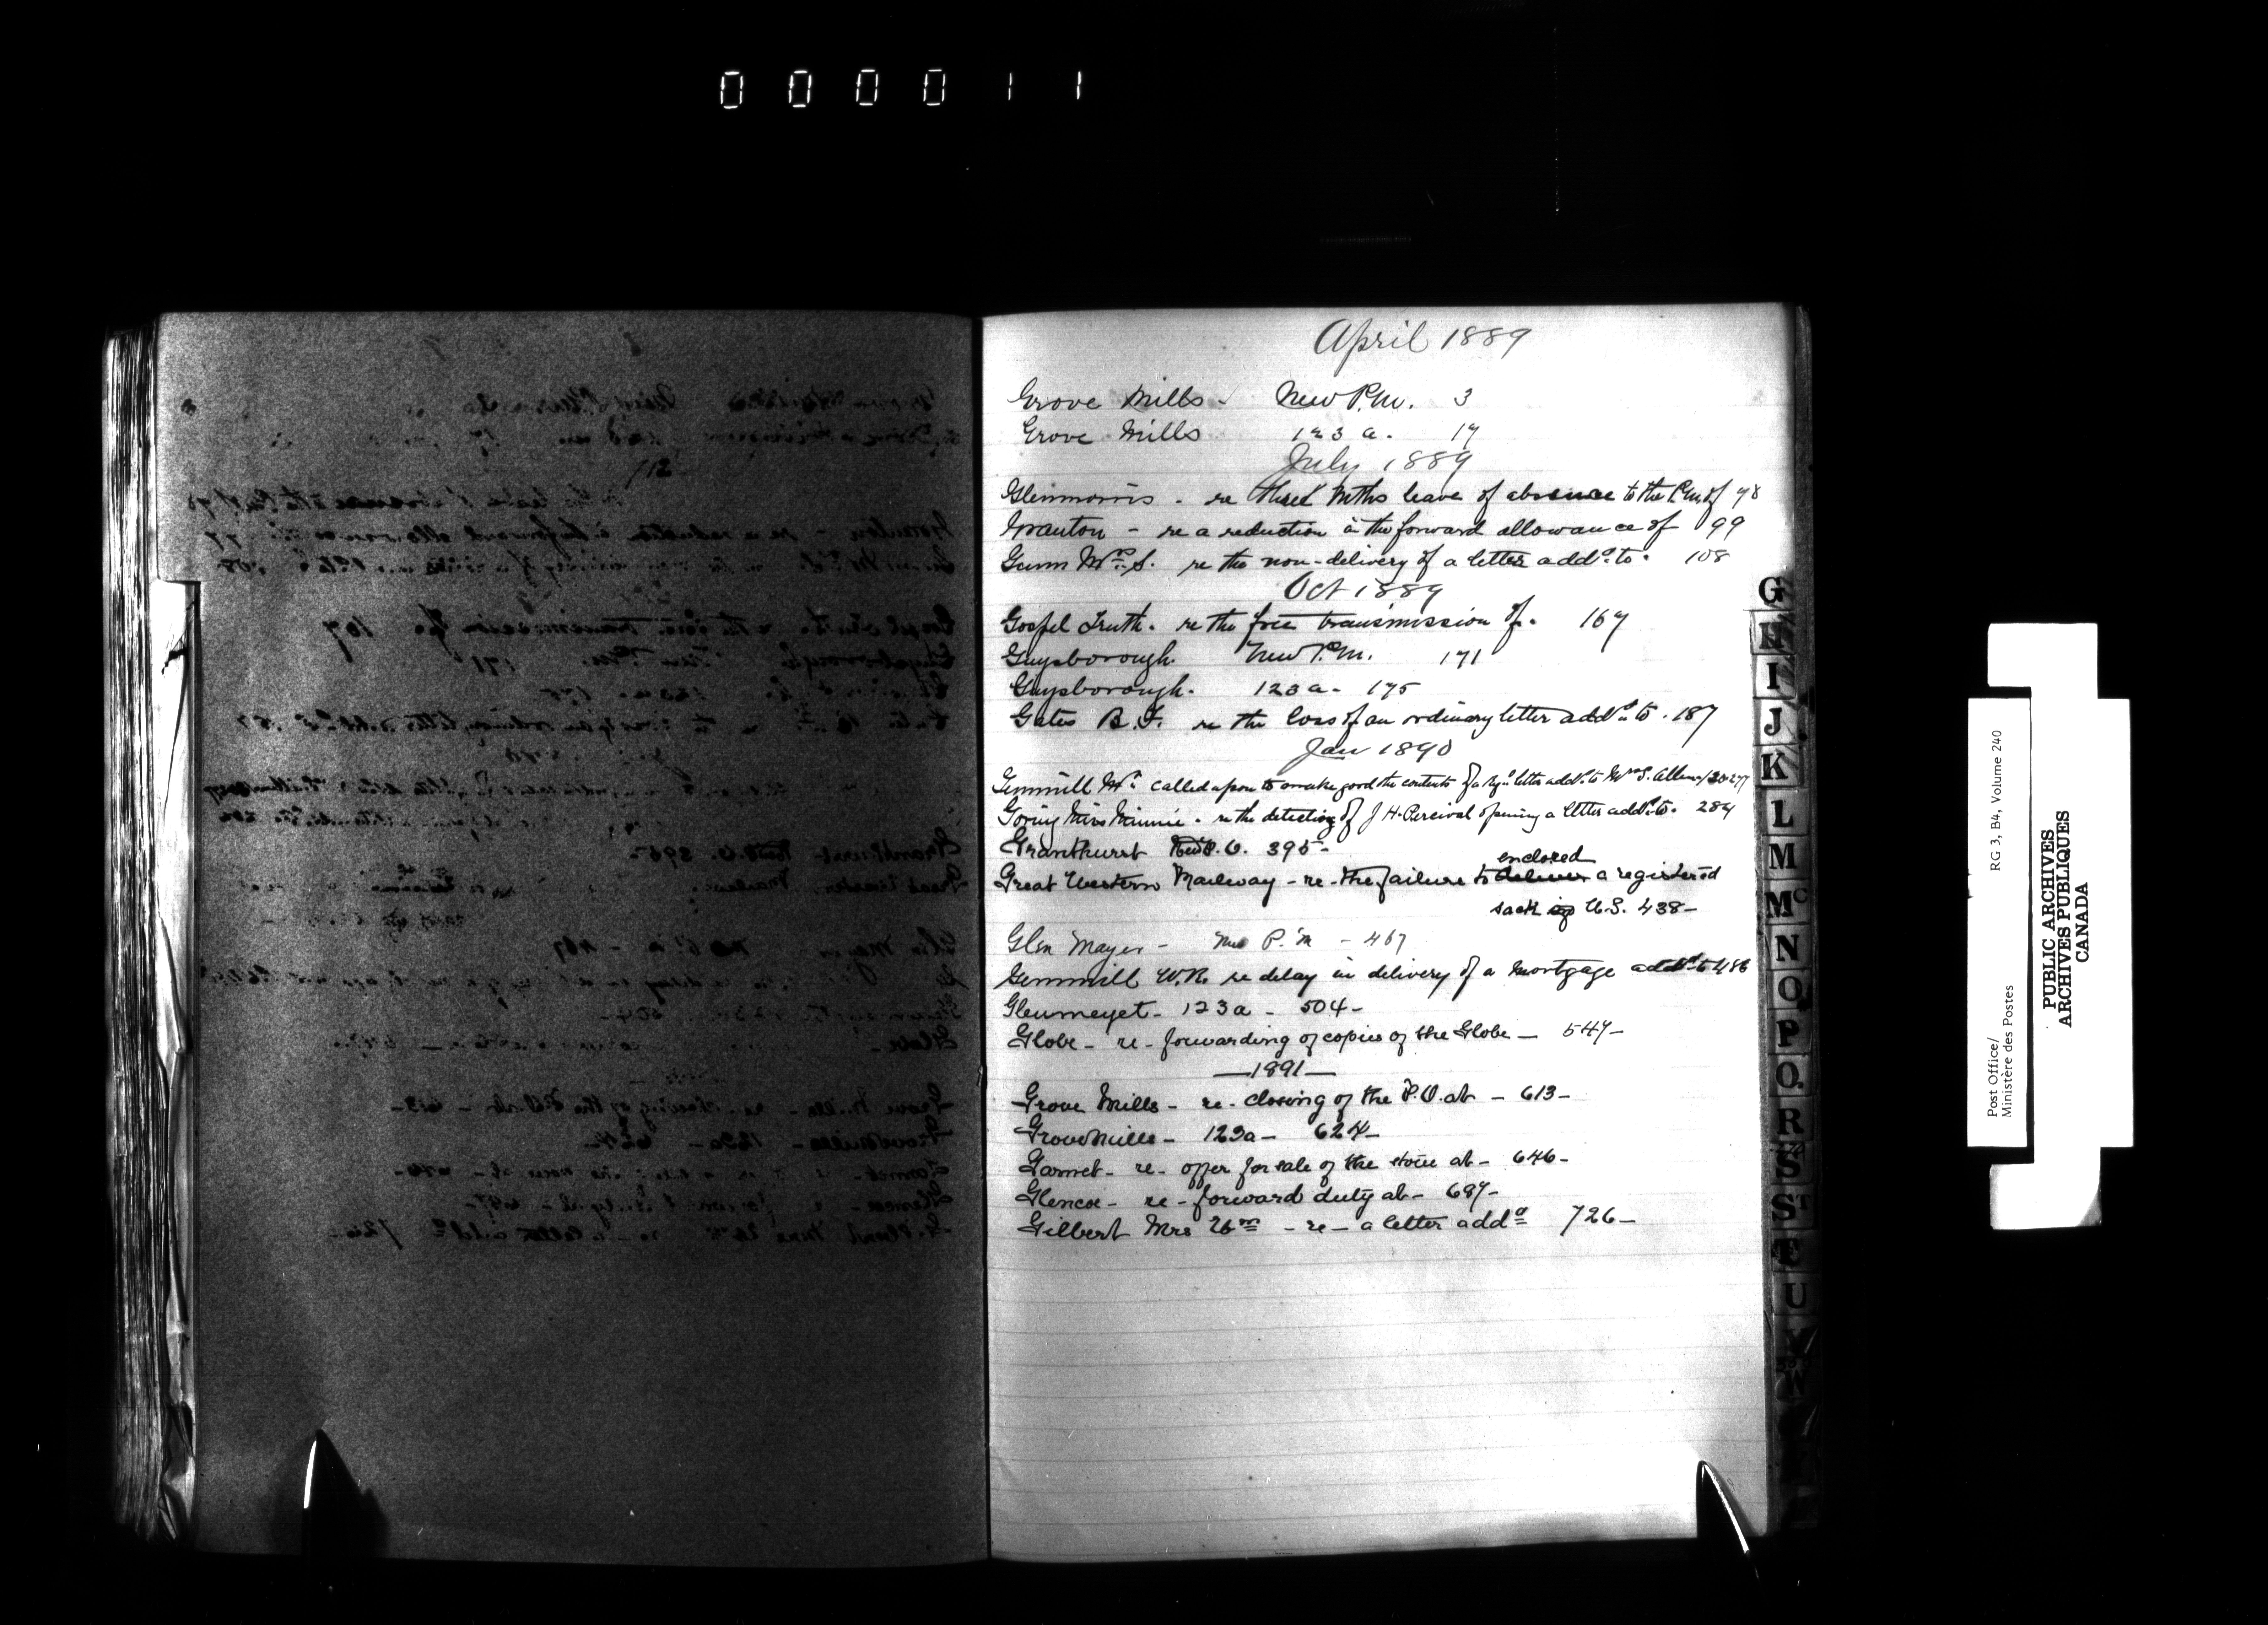 000011
April 1889
Grove Mills - New P.M. 3
Grove Mills 123 a. 17
July 1889
Glenmorris - re three mths leave of absence to the P.M. of 98
Granton - re a reduction in the forward allowance of 99
Gunn Mrs. S. re the non-delivery of a letter addd. to. 108
Oct 1889
Gospel Truth. re the free transmission of. 167
Guysborough. New P.M. 171
Guysborough. 123 a. 175
Gates B. F. re the loss of an ordinary letter addd. to. 187
Jan 1890
Gemmill Mr. called upon to make good the contents of a regd. letter addd. to Mrs S. Allen 277
Goring Miss Minnie. re the detecting of J H. Percival opening a letter addd. to. 284
Granthurst New P.O. 395-
Great Western Railway - re - the failure to deliver enclosed a registered
sack U.S. 438-
Glen Mayer - New P.M - 467
Gemmill W.R. re delay in delivery of a Mortgage addd. to 486
Glenmeyet - 123a - 504-
Globe - re - forwarding of copies of the Globe - 547-
-1891-
Grove Mills - re - closing of the P.O. at - 613-
Grove Mills - 123a - 624-
Garnet - re - offer for sale of the store at - 646-
Glencoe - re - forward duty at - 697-
Gilbert Mrs Wm - re - a letter addd 726-
G
H
I
J
K
L
M
Mc
N
O
P
Q.
R
S
ST
T
U
V
W
Post Office/
Ministère des Postes
RG 3, B4, Volume 240
PUBLIC ARCHIVES
ARCHIVES PUBLIQUES
CANADA